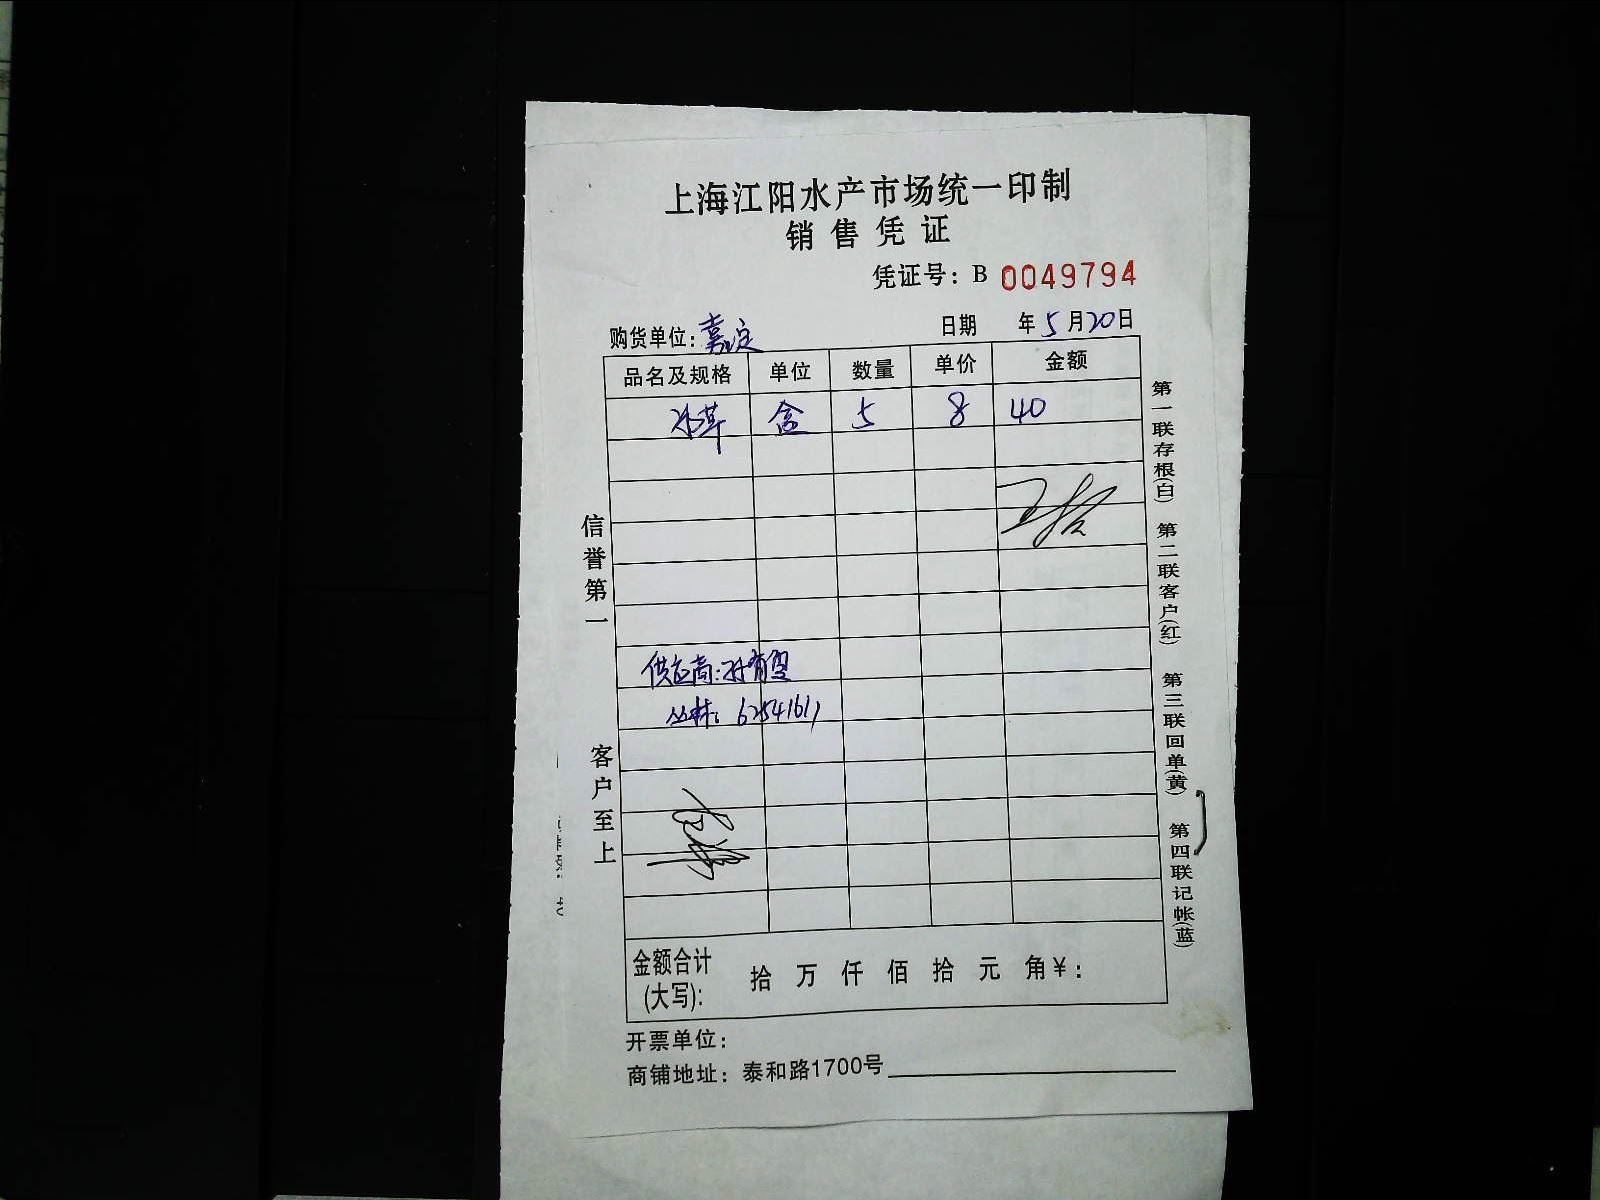 上海江阳水产市场统一印制
销售凭证
凭证号：B 0049794
购货单位：嘉定 日期 年5月20日
品名及规格 单位 数量 单价 金额
冰草 盒 5 8 40
供应商：孙育宝
丛林：62541611
金额合计(大写)： 拾 万 仟 佰 拾 元 角￥：
开票单位：
商铺地址：泰和路1700号
信誉第一
客户至上
第一联存根(白) 第二联客户(红) 第三联回单(黄) 第四联记帐(蓝)